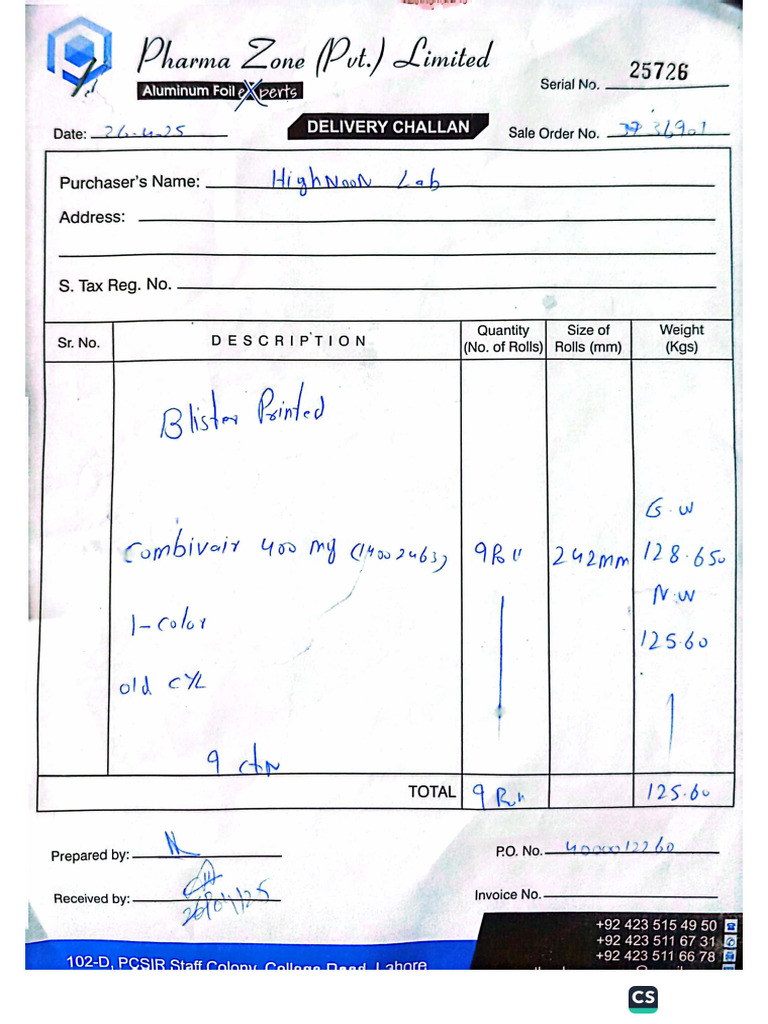 Pharma Zone (Pvt.) Limited
Aluminum Foil eXperts
Serial No. 25726
Date: 26-4-25
DELIVERY CHALLAN
Sale Order No. 36901
Purchaser's Name: HighNooN Lab
Address:
S. Tax Reg. No.
Sr. No. DESCRIPTION Quantity (No. of Rolls) Size of Rolls (mm) Weight (Kgs)
Blister Printed
G.W
Combivair 400 mg (14002463) 9 Roll 242mm 128.650
N.W
1-Color 125.60
old CYL
9 ctn
TOTAL 9 Roll 125.60
Prepared by:
P.O. No. 4000012260
Received by:
26/04/25
Invoice No.
+92 423 515 49 50
+92 423 511 67 31
+92 423 511 66 78
102-D, PCSIR Staff Colony, College Road, Lahore
CS